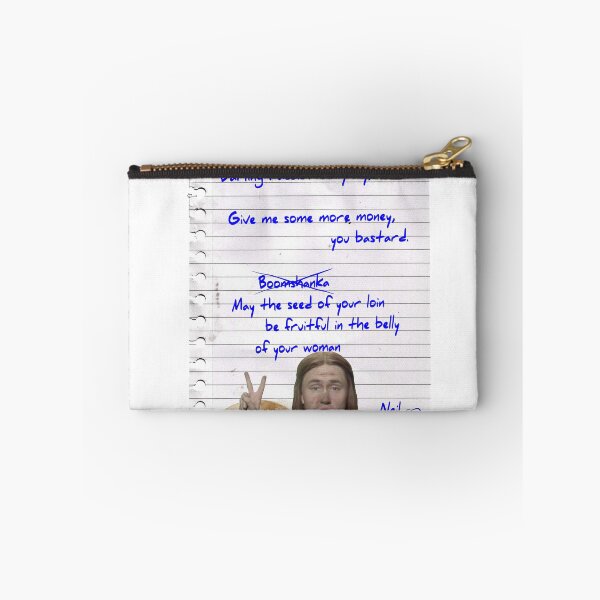 Darling
Give me some more, money,
you bastard.
Boomshanka
May the seed of your loin
be fruitful in the belly
of your woman
Neil